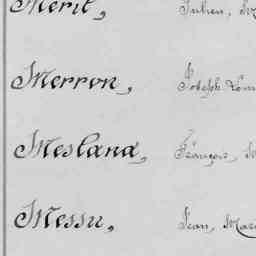 Merit, Julien,
Merron, Joseph Loui
Mesland, François,
Messu, Jean, Mari